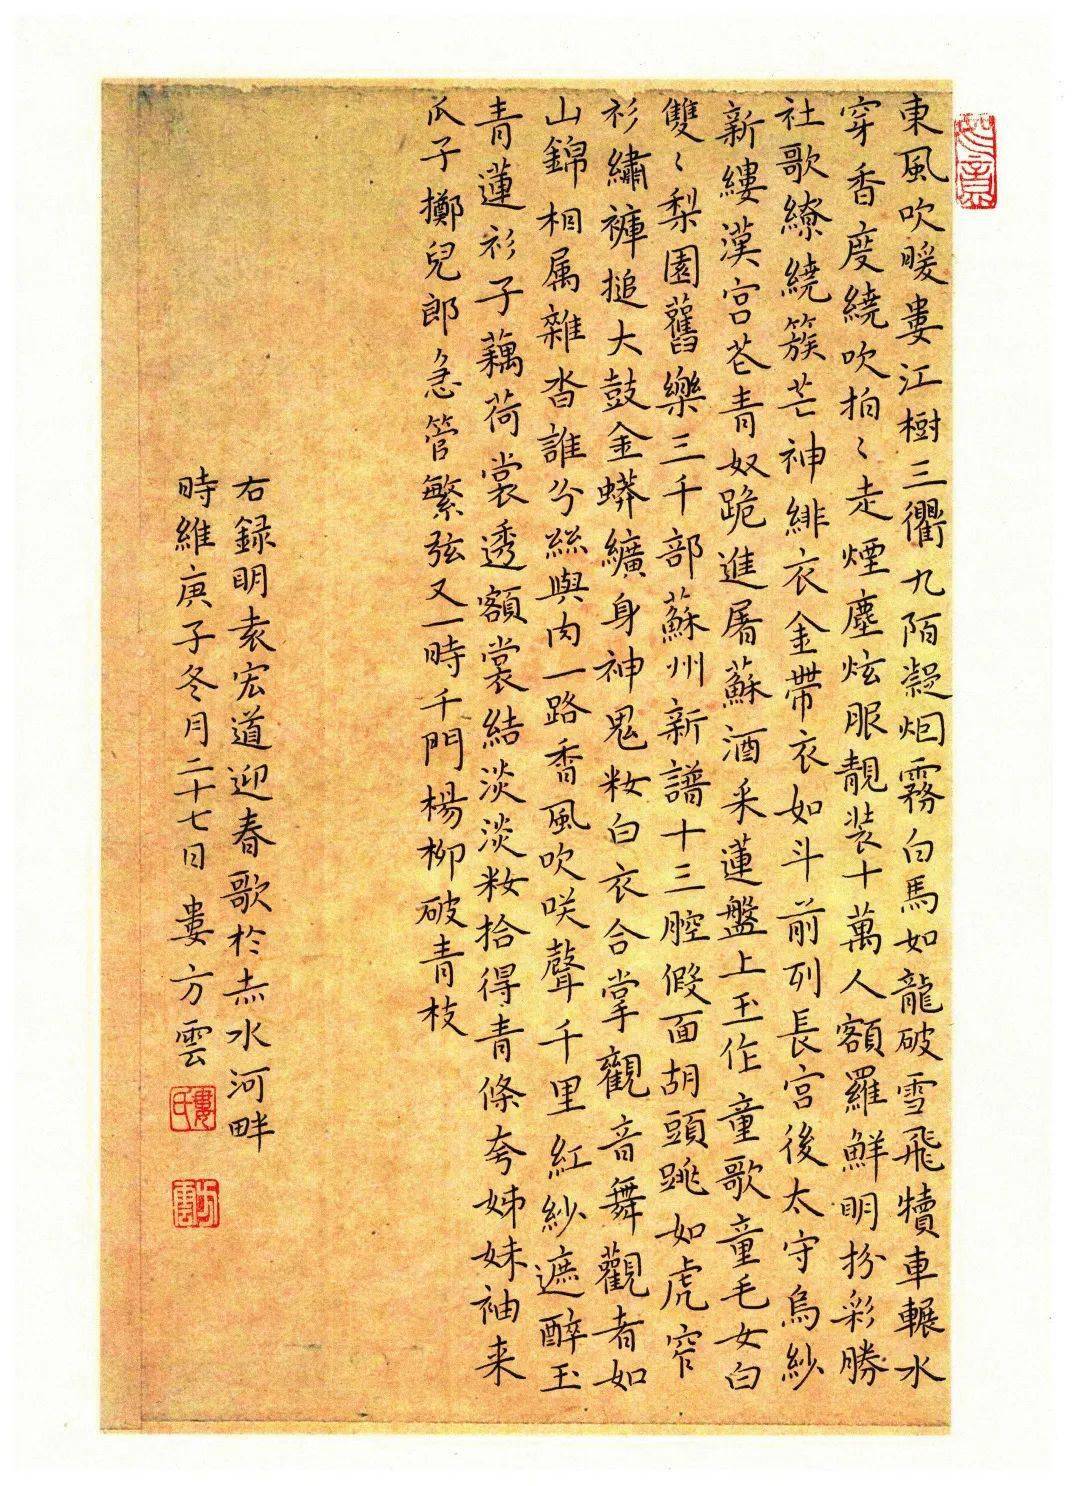 東風吹暖婁江樹三衢九陌凝烟霧白馬如龍破雪飛犢車輾水
穿香度繞吹拍〻走煙塵炫服靚裝十萬人額羅鮮明扮彩勝
社歌繚繞簇芒神緋衣金帶衣如斗前列長宮後太守烏紗
新縷漢宮花青奴跪進屠蘇酒采蓮盤上玉作童歌童毛女白
雙〻梨園舊樂三千部蘇州新譜十三腔假面胡頭跳如虎窄
衫繡褲搥大鼓金蟒纊身神鬼妝白衣合掌觀音舞觀者如
山錦相属雜沓誰分絲與肉一路香風吹咲聲千里紅紗遮醉玉
青蓮衫子藕荷裳透額裳結淡淡妝拾得青條夸姊妹袖来
瓜子擲兒郎急管繁弦又一時千門楊柳破青枝
右録明袁宏道迎春歌於赤水河畔
時維庚子冬月二十七日婁方雲
婁氏
方雲